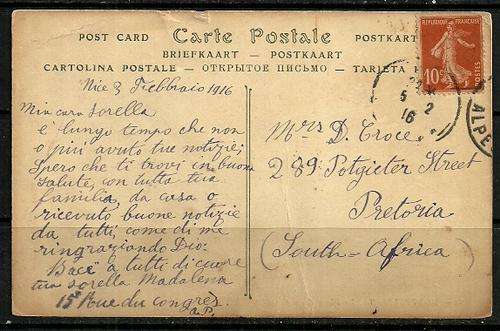 POST CARD Carte Postale POSTKART
BRIEFKAART — POSTKAART
CARTOLINA POSTALE — ОТКРЫТОЕ ПИСЬМО — TARJETA
REPUBLIQUE FRANÇAISE
10c
POSTES
5 2
16
ALPE
Nice 3 Febbraio 1916
Mia cara Sorella
è lungo tempo che non
o piu avuto tue notizie;
Spero che ti trovi in buona
salute, con tutta tua
familia, da casa o
ricevuto buone notizie
da tutti come di me
ringraziando Dio:
Baci a tutti di cuore
tua sorella Madalena
15 Rue du Congres
A.P.
Mrs D. Croce
289 Potgieter Street
Pretoria
(South-Africa)